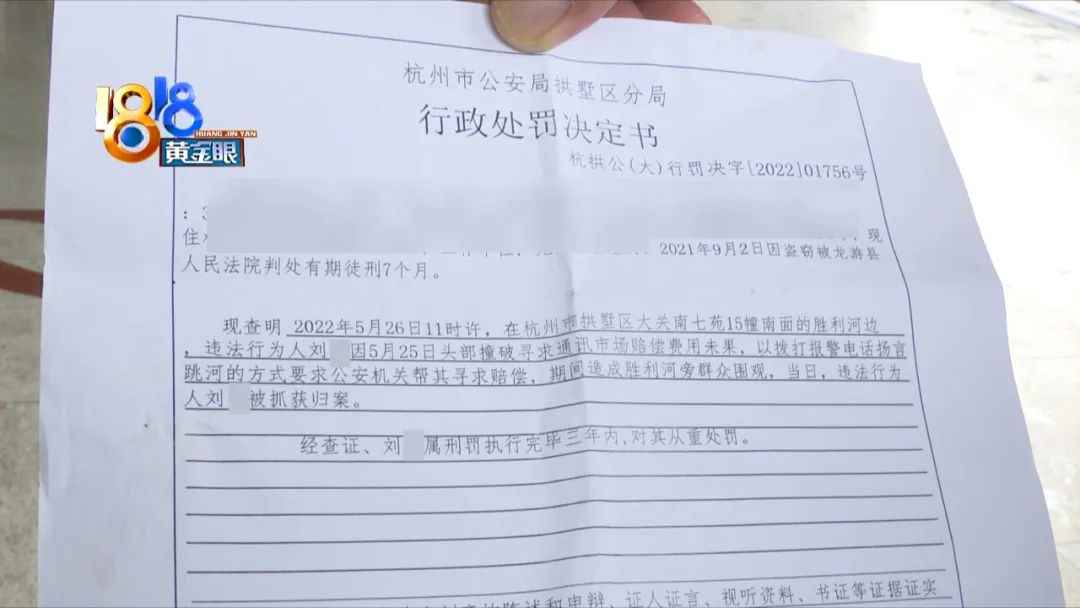 1818
HUANG JIN YAN
黄金眼
杭州市公安局拱墅区分局
行政处罚决定书
杭拱公(大)行罚决字[2022]01756号
:3
住
,现
2021年9月2日因盗窃被龙游县
人民法院判处有期徒刑7个月。
现查明 2022年5月26日11时许,在杭州市拱墅区大关南七苑15幢南面的胜利河边
,违法行为人刘 因5月25日头部撞破寻求通讯市场赔偿费用未果,以拨打报警电话扬言
跳河的方式要求公安机关帮其寻求赔偿,期间造成胜利河旁群众围观,当日,违法行为
人刘 被抓获归案。
经查证、刘 属刑罚执行完毕三年内,对其从重处罚。
的陈述和申辩、证人证言、视听资料、书证等证据证实